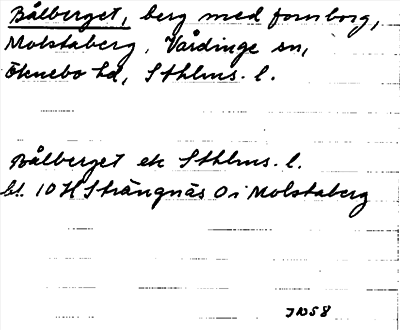 Bålberget, berg med fornborg,
Molstaberg, Vårdinge sn,
Öknebo hd, Sthlms. l.
Bålberget ek Sthlms. l.
bl. 10 H Strängnäs O i Molstaberg